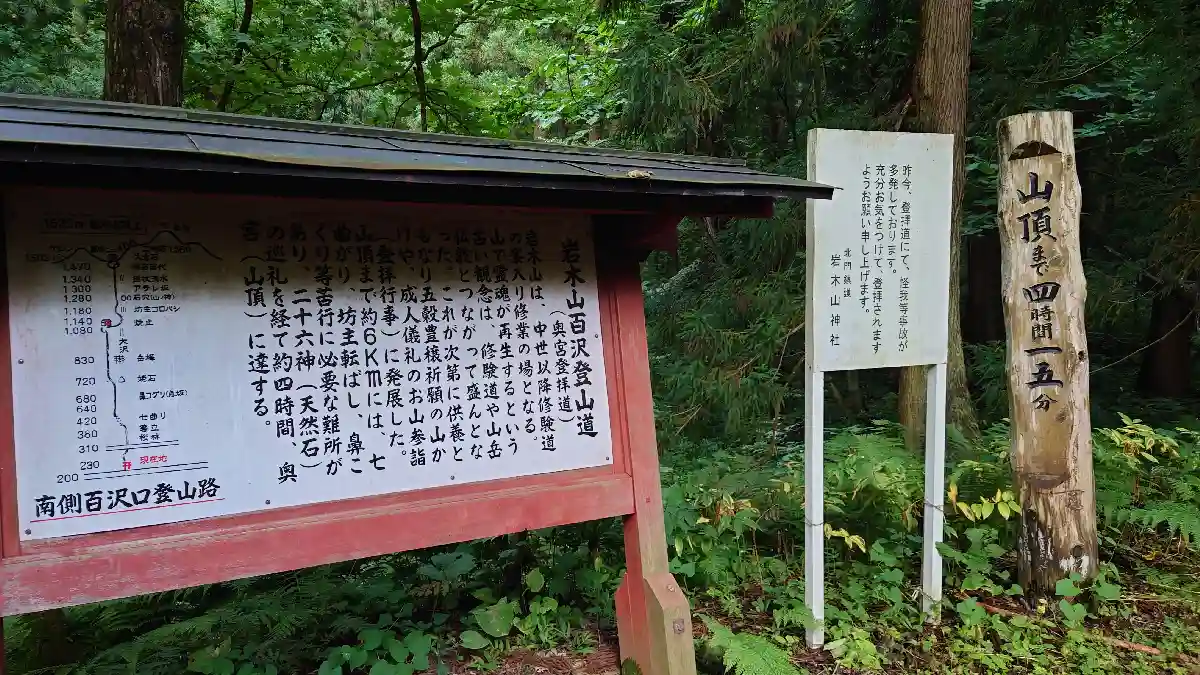 岩木山百沢登山道
(奥宮登拝道)
岩木山は、中世以降修験道
の峯入り修業の場となる。
山で霊魂が再生するという
古い観念は、修験道や山岳
仏教とつながって盛んとな
った。これが次第に供養と
もなり五穀豊穣祈願の山か
けや、成人儀礼のお山参詣
(登拝行事)に発展した。
山頂まで約6KMには、七
曲り、坊主転ばし、鼻こ
ぐり等苦行に必要な難所が
あり、二十六神(天然石)
の巡礼を経て約四時間、奥
宮(山頂)に達する。
1,470
1,340
1,300
1,280
1,180
1,140
1,080
830
720
680
640
430
360
310
230
200
坊主コロバシ
大沢
焼止
姥石
鼻コグリ
七曲り
桜林
現在地
南側百沢口登山路
昨今、登拝道にて、怪我等事故が
多発しております。
充分お気をつけて、登拝されます
ようお願い申し上げます。
北門鎮護
岩木山神社
山頂まで四時間一五分